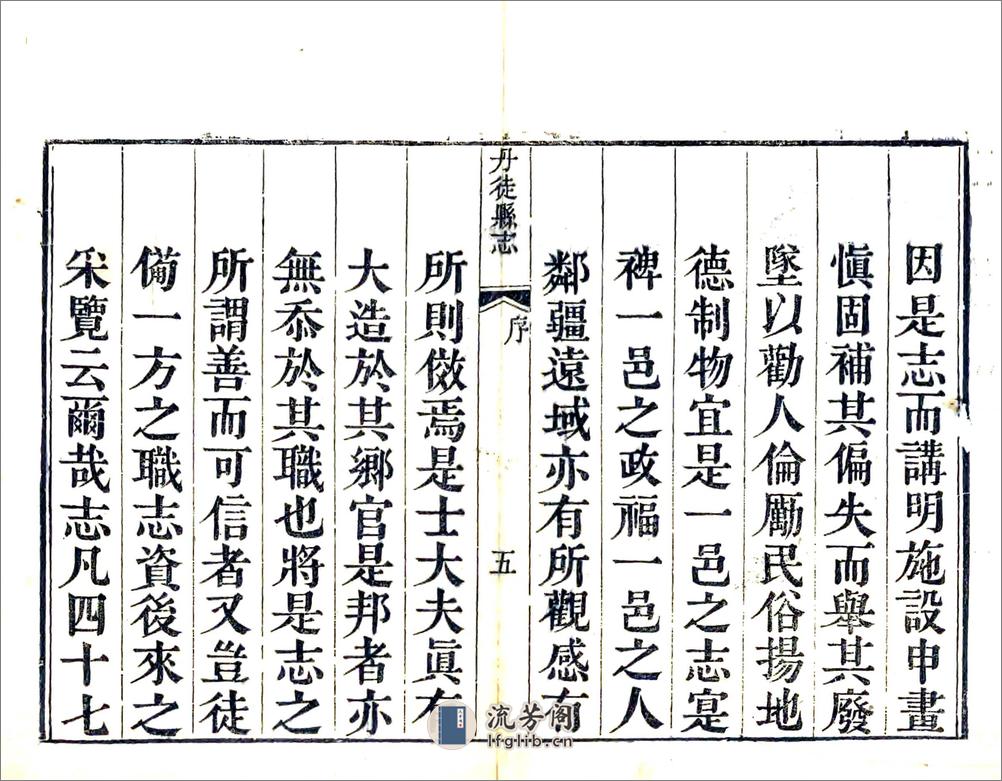 因是志而講明施設申畫
慎固補其偏失而舉其廢
墜以勸人倫勵民俗揚地
德制物宜是一邑之志寔
裨一邑之政福一邑之人
鄰疆遠域亦有所觀感有
丹徒縣志 序 五
所則傚焉是士大夫眞有
大造於其鄉官是邦者亦
無忝於其職也將是志之
所謂善而可信者又豈徒
備一方之職志資後來之
采覽云爾哉志凡四十七
流芳阁
lfglib.cn